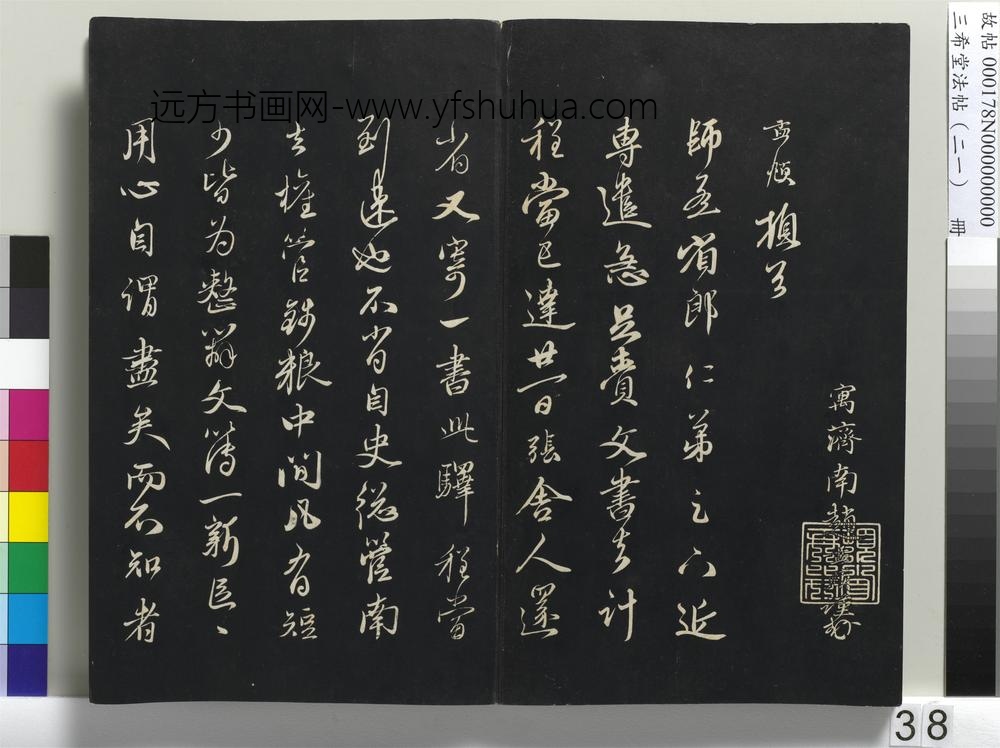 远方书画网-www.yfshuhua.com
故帖 000178N000000000
三希堂法帖(二一) 册
寓濟南趙
孟頫頓首
師孟省郎仁弟足下近
專遣急足賫文書去計
程當已達廿一日張舍人還
省又寄一書此驛程當
到速也不肖自史總管南
去權管錢粮中間凡有短
少皆为整辦文簿一新區〻
用心自谓盡矣而不知者
38